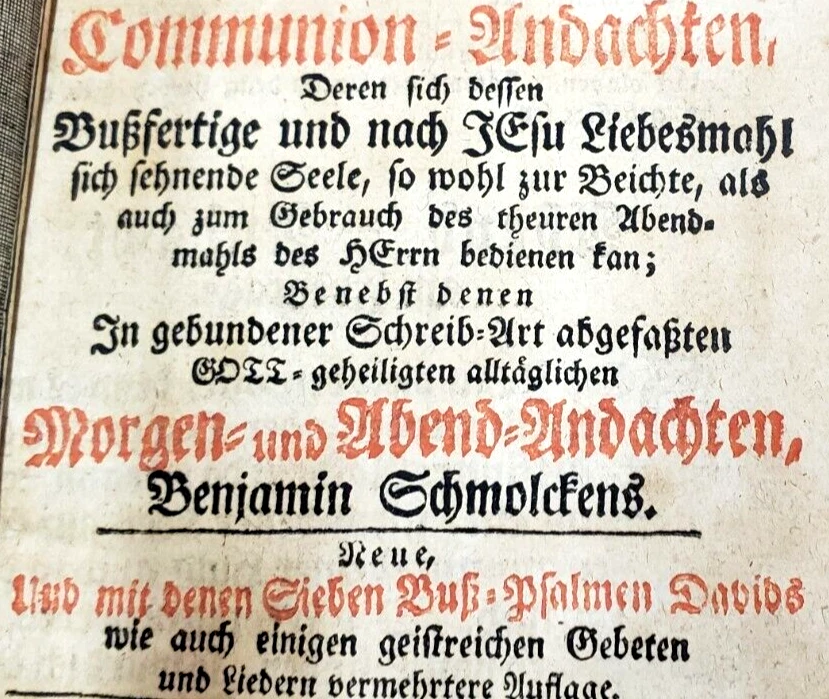 Communion-Andachten,
Deren sich dessen
Bußfertige und nach JEsu Liebesmahl
sich sehnende Seele, so wohl zur Beichte, als
auch zum Gebrauch des theuren Abend-
mahls des HErrn bedienen kan;
Benebst denen
In gebundener Schreib-Art abgefaßten
GOTT-geheiligten alltäglichen
Morgen- und Abend-Andachten,
Benjamin Schmolckens.
Neue,
Und mit denen Sieben Buß-Psalmen Davids
wie auch einigen geistreichen Gebeten
und Liedern vermehrtere Auflage.